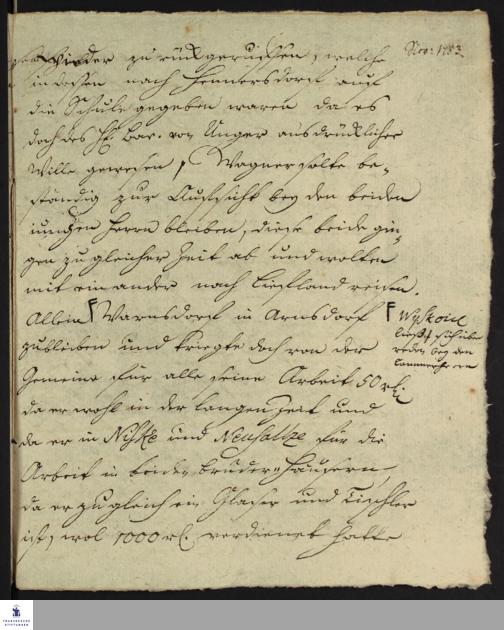 Nov: 1753
Kinder zurückgeruffen, welche
indessen nach Hennersdorff auf
die Schule gegeben waren da es
doch des H. Bar. von Unger ausdrücklicher
Wille gewesen, Wagner solte be-
ständig zur Aufsicht bey den beiden
jungen Herrn bleiben, diese beide gin-
gen zu gleicher Zeit ab und wolten
mit einander nach Liefland reisen.
Allein Warnsdorf in Arnsdorf
Wyskoid
ließ sich über
reden bey den
zubleiben und kriegte doch von der
Gemeine für alle seine Arbeit 50 rl.
da er wohl in der langen Zeit und
da er in Niske und Neusaltze für die
Arbeit in beiden brüder-Häusern,
da er zugleich ein Glaser und Tischler
ist, wol 1000 rl. verdienet hatte
FRANCKESCHE
STIFTUNGEN